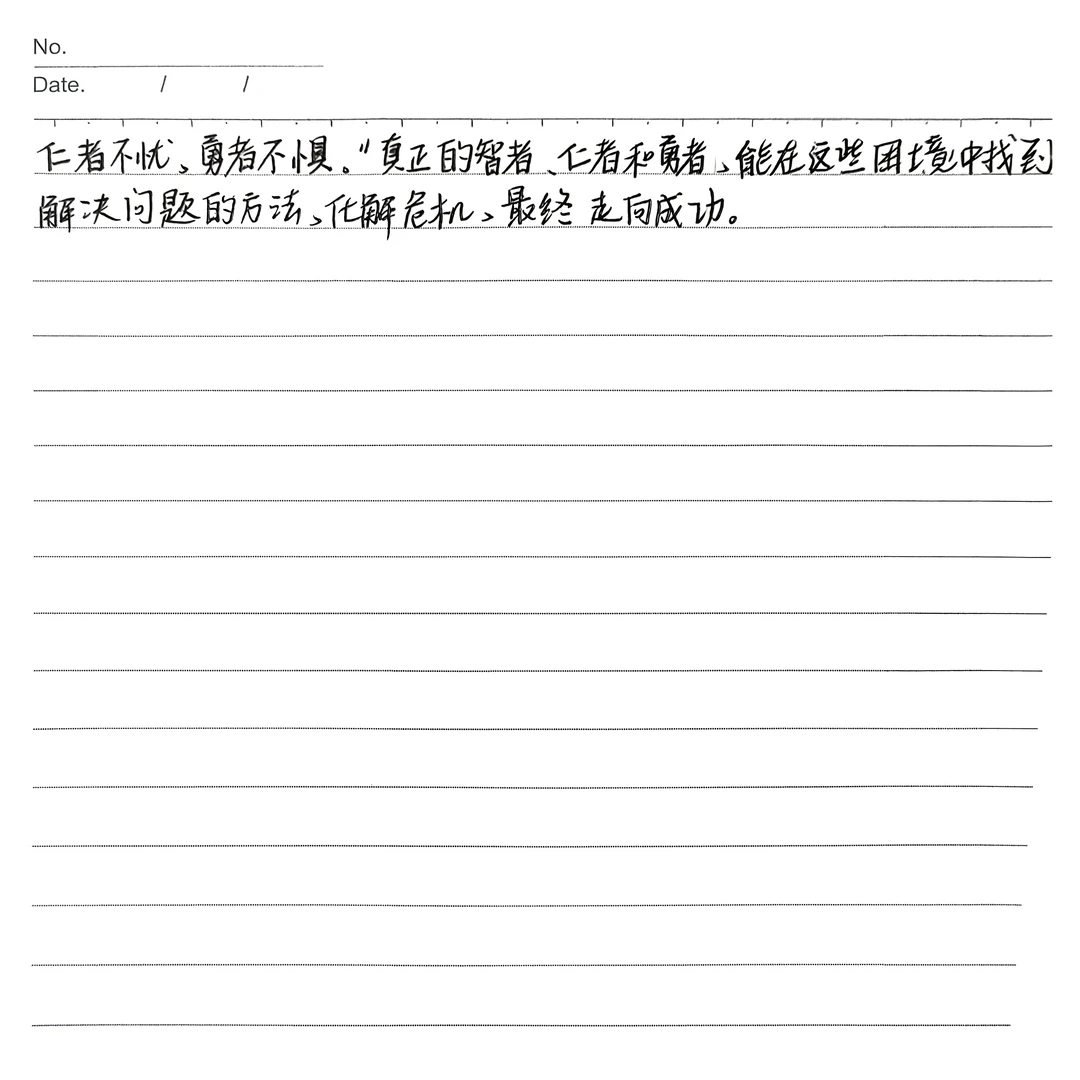 No.
Date. / /
仁者不忧、勇者不惧。"真正的智者、仁者和勇者,能在这些困境中找到
解决问题的方法,化解危机,最终走向成功。